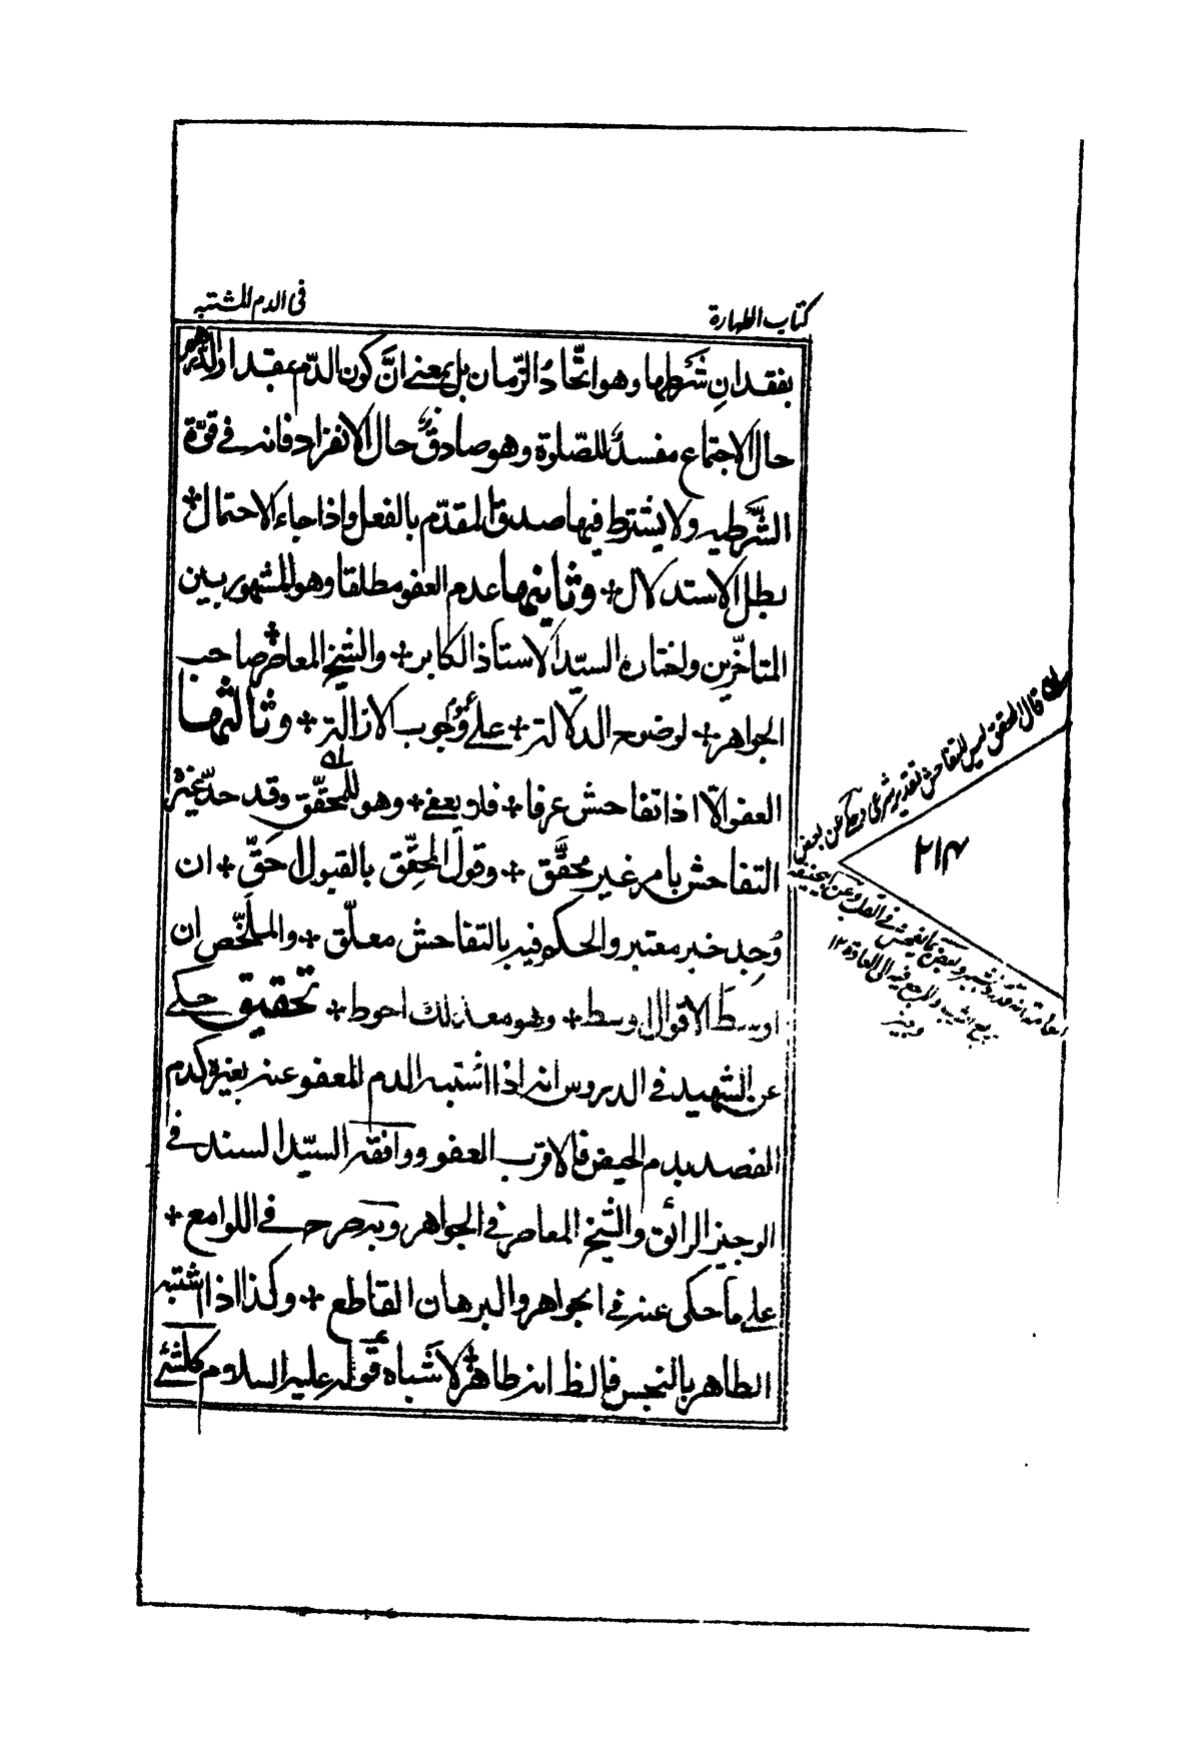 كتاب الطهارة
فى الدم المشتبه
بفقدانِ شرطها وهو اتّحادُ الزّمان بل بمعنى انَّ كون الدّم بمقدار الدرهم
حال الاجتماع مفسدٌ للصّلوة وهو صادقٌ حال الانفراد فانه فى قوّة
الشَّرطيه ولا يشترط فيها صدق المقدّم بالفعل واذا جاء الاحتمال +
بطل الاستدلال + وثانيها عدم العفو مطلقا وهو المشهور بين
المتاخّرين واختاره السيّد الاستاذ الكابر + والشيخ المعاصر + صاحب
الجواهر + لوضوح الدلالة + على وجوب الازالة + وثالثها
العفو الّا اذا تفاحش عرفا + فلا يعفى + وهو للمحقّق وقد حدّ غيره
التفاحش بامر غير محقَّق + وقول المحقِّق بالقبول حقّ + ان
وُجِد خبر معتبر والحكم فيه بالتفاحش معلّق + والملخّص ان
اوسط الاقوال وسط + وهو مع ذلك احوط + تحقيق حكى
عن الشهيد فى الدروس انه اذا اشتبه الدم المعفو عنه بغيره كدم
الفصد بدم الحيض فالاقرب العفو ووافقه السيّد السند فى
الوجيز الرائق والشيخ المعاصر فى الجواهر وبه صرح فى اللوامع +
على ما حكى عنه فى الجواهر والبرهان القاطع + وكذا اذا اشتبه
الطاهر بالنجس فالظ انه طاهر + لاشباه قوله عليه السلام كلشئ
قال المحقق ليس للتفاحش تقدير شرعى وحكى عن بعض
٢١٤